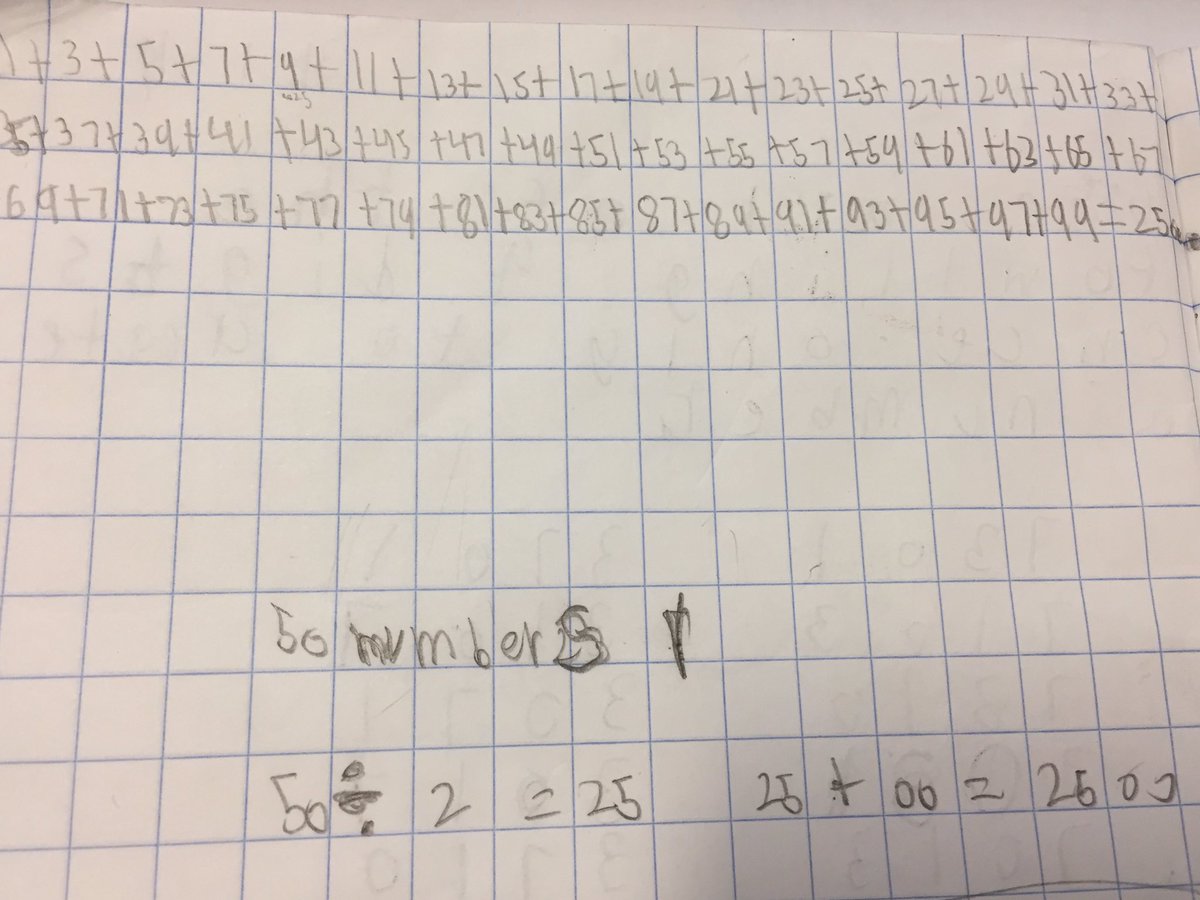 1+3+5+7+9+11+13+15+17+19+21+23+25+27+29+31+33+
35+37+39+41+43+45+47+49+51+53+55+57+59+61+63+65+67
69+71+73+75+77+79+81+83+85+87+89+91+93+95+97+99=25
50 numbers
50 ÷ 2 = 25 25 + 00 = 2500